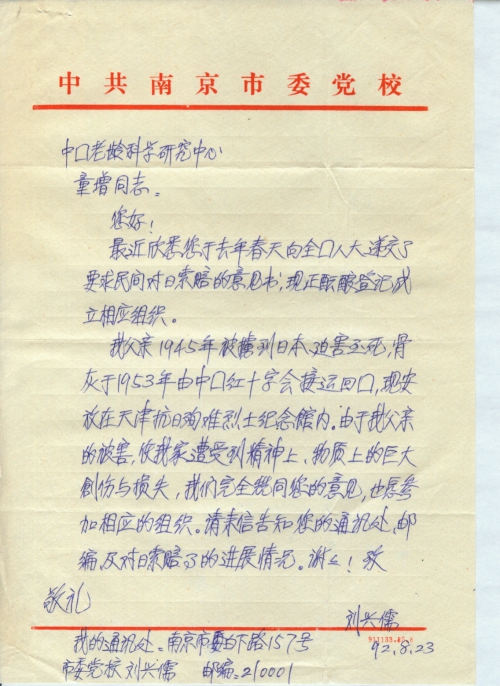 中共南京市委党校
中口老龄科学研究中心
童增同志:
您好!
最近欣悉您于去年春天向全口人大递交了
要求民间对日索赔的意见书,现正酝酿登记成
立相应组织。
我父亲1945年被掳到日本迫害至死,骨
灰于1953年由中口红十字会接运回口,现安
放在天津抗日殉难烈士纪念馆内。由于我父亲
的被害,使我家遭受到精神上、物质上的巨大
创伤与损失,我们完全赞同您的意见,也愿参
加相应的组织。请来信告知您的通讯处、邮
编及对日索赔的进展情况。谢谢!致
敬礼
刘兴儒
92.8.23
我的通讯处:南京市白下路157号
市委党校 刘兴儒 邮编:210001